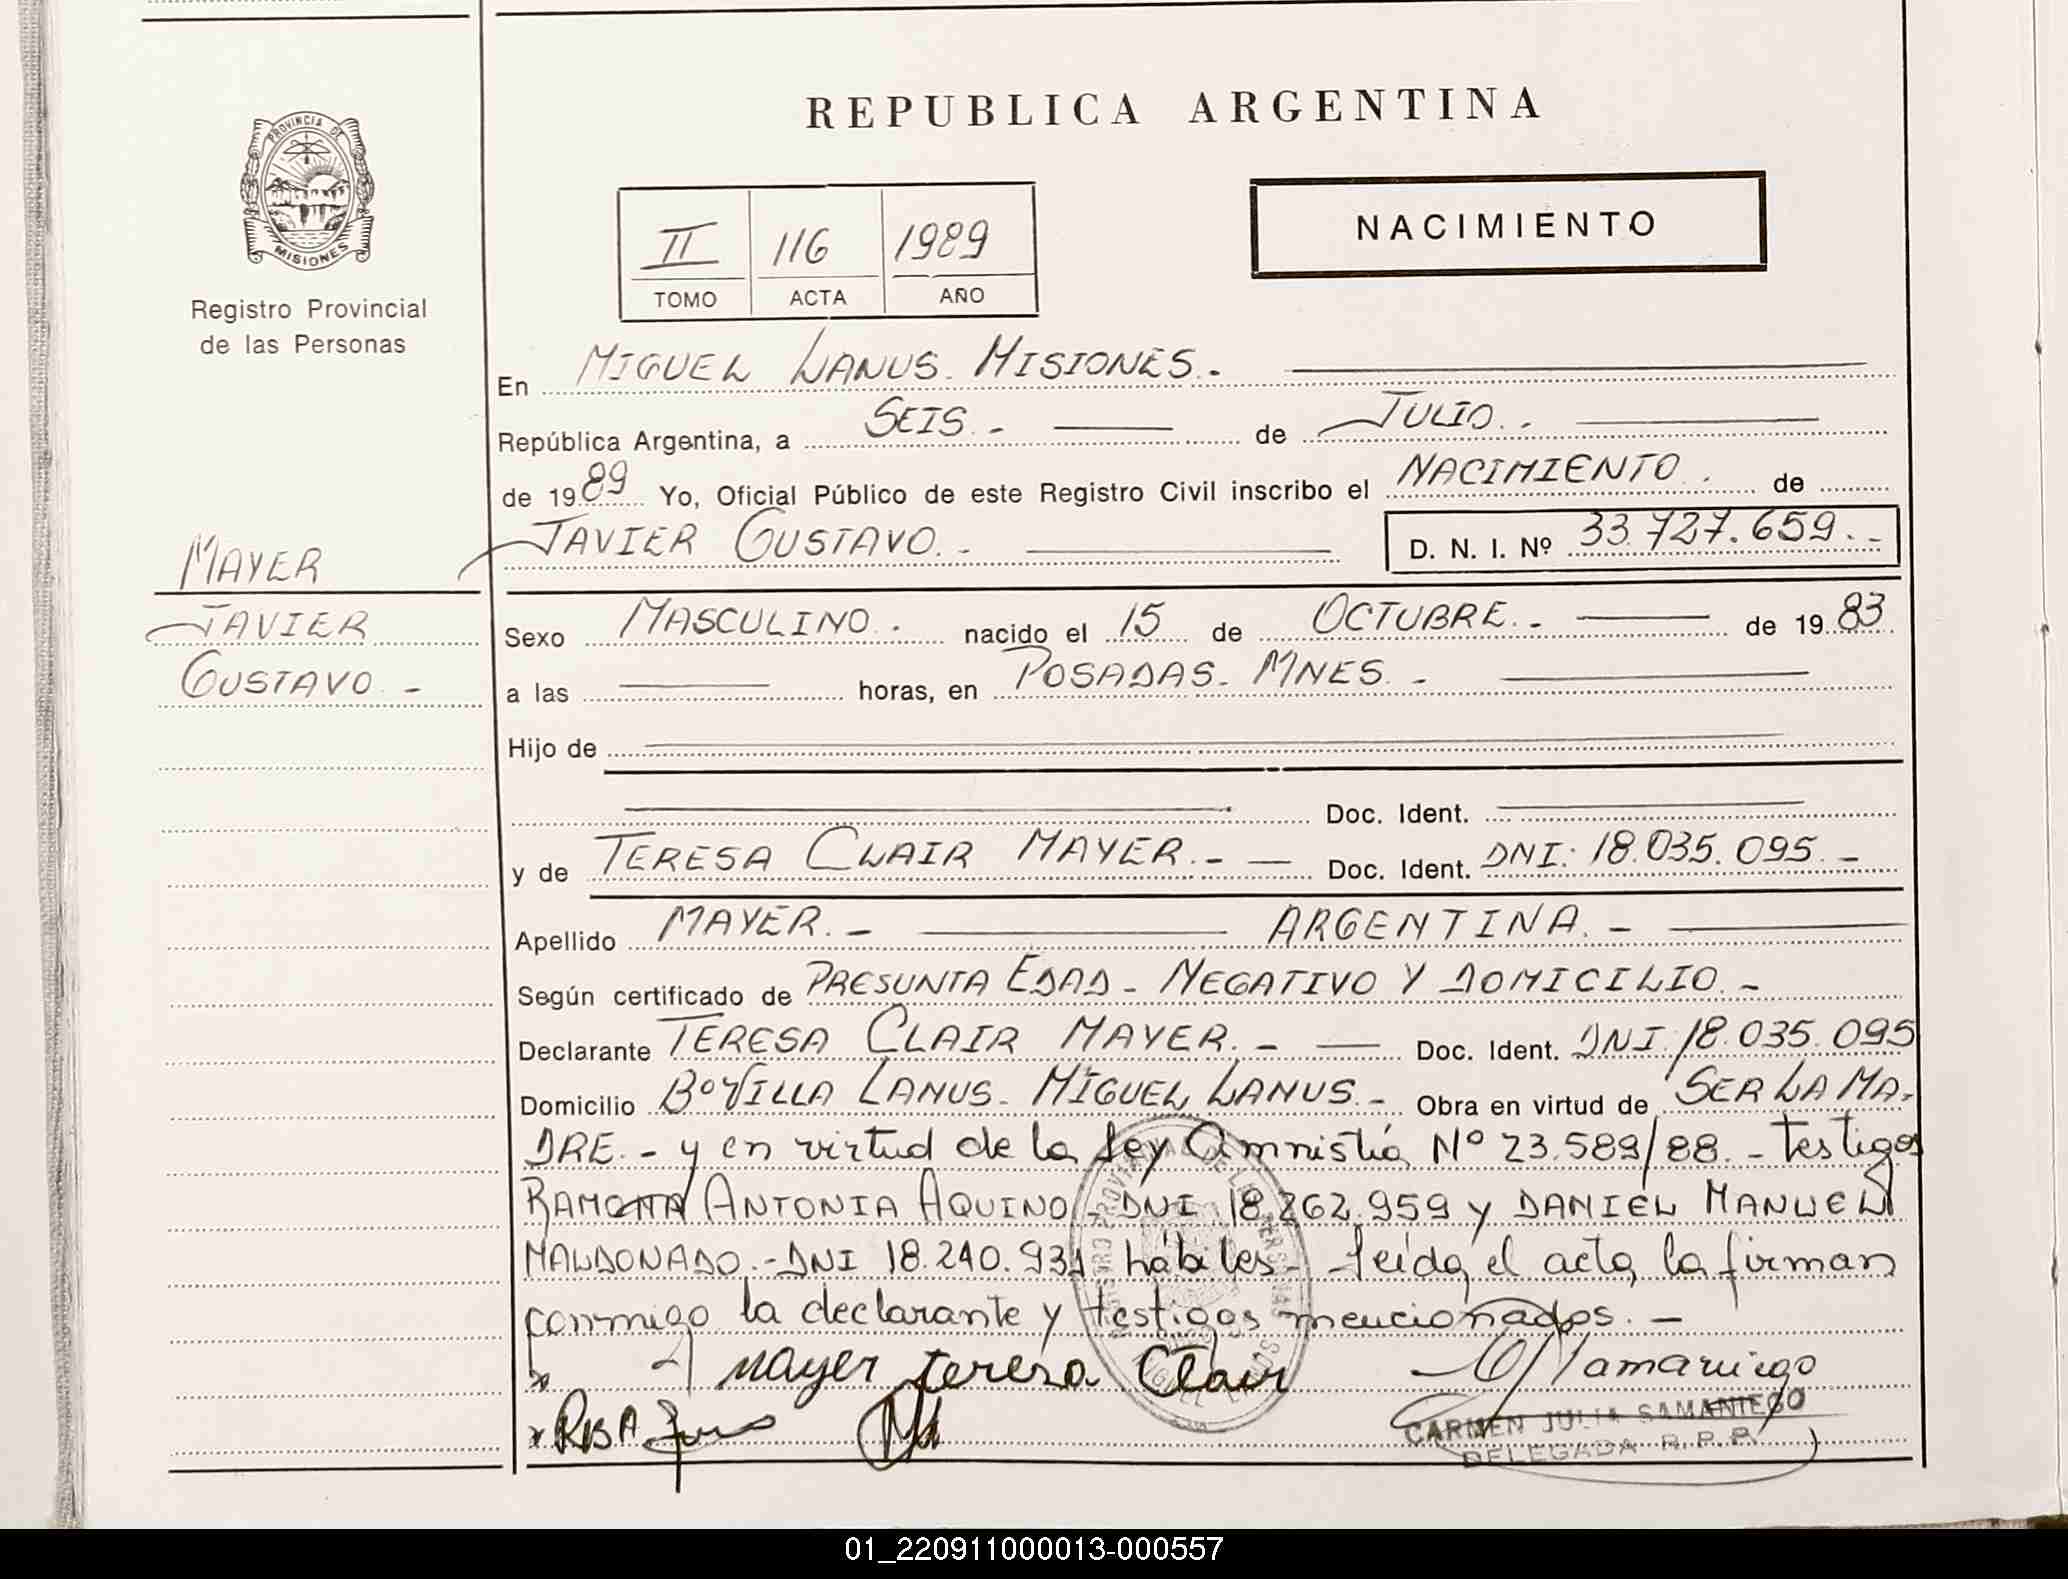 REPUBLICA ARGENTINA
PROVINCIA DE
MISIONES
Registro Provincial
de las Personas
II 116 1989
TOMO ACTA AÑO
NACIMIENTO
En MIGUEL LANUS. MISIONES.
República Argentina, a SEIS.- de JULIO.
de 1989 Yo, Oficial Público de este Registro Civil inscribo el NACIMIENTO. de
JAVIER GUSTAVO.- D. N. I. Nº 33.727.659.-
MAYER
JAVIER
GUSTAVO.-
Sexo MASCULINO. nacido el 15 de OCTUBRE.- de 1983
a las horas, en POSADAS- MNES.-
Hijo de
Doc. Ident.
y de TERESA CLAIR MAYER.- Doc. Ident. DNI: 18.035.095.-
Apellido MAYER.- ARGENTINA.-
Según certificado de PRESUNTA EDAD- NEGATIVO Y DOMICILIO.-
Declarante TERESA CLAIR MAYER.- Doc. Ident. DNI: 18.035.095
Domicilio Bº VILLA LANUS- MIGUEL LANUS.- Obra en virtud de SER LA MA-
DRE.- y en virtud de la Ley Amnistía Nº 23.589/88.- testigos
RAMONA ANTONIA AQUINO- DNI 18.262.959 y DANIEL MANUEL
MALDONADO.- DNI 18.240.931 hábiles- Leída el acta, la firman
conmigo la declarante y testigos mencionados.-
mayer teresa Clair
Samaniego
CARMEN JULIA SAMANIEGO
DELEGADA R.P.P.
01_220911000013-000557